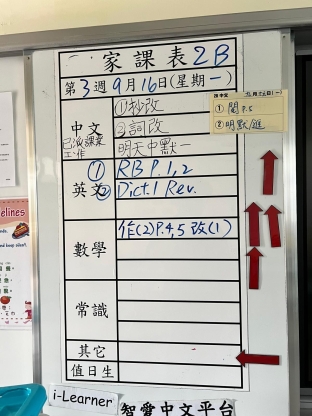 家課表2B
第3週9月16日(星期一)
中文
已派課業
工作
①抄改
②詞改
明天中默一
九月十六日(一)
①閱P.5
②明默
英文
① RB P.1,2
② Dict.1 Rev.
數學
作(2)P.4,5 改(1)
常識
其它
值日生
i-Learner
智愛中文平台
elines
and keep silent.